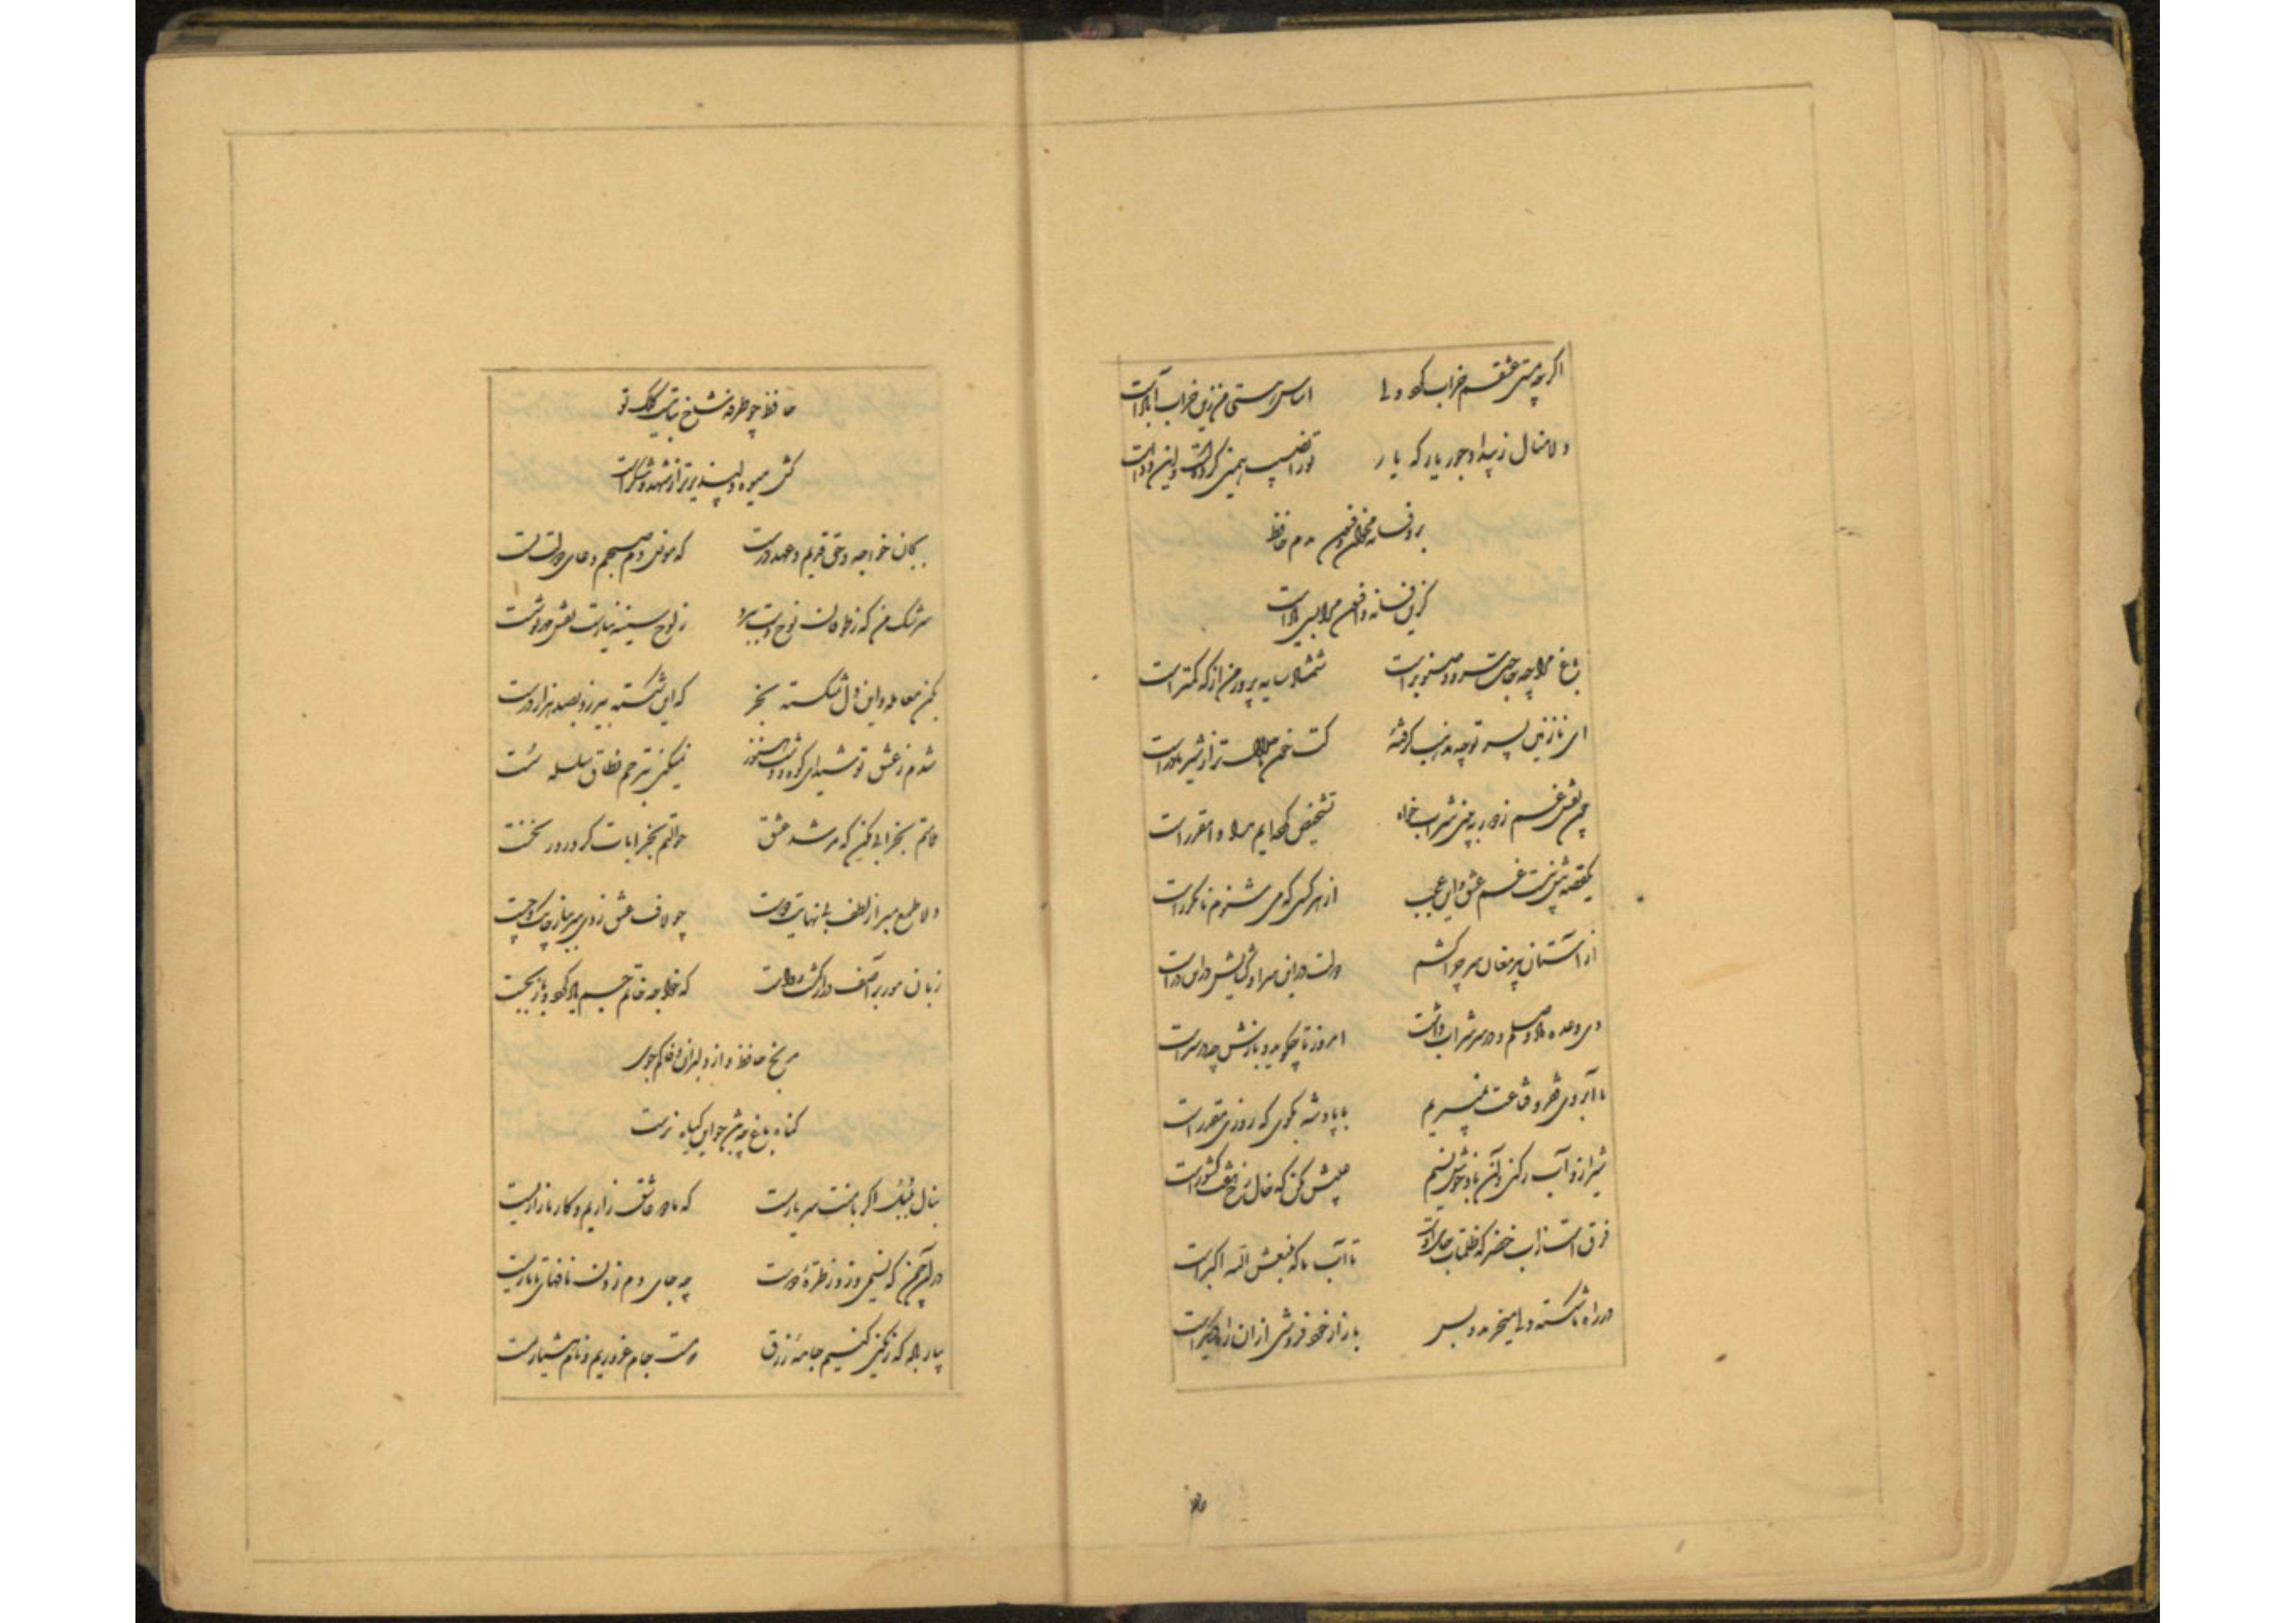 اگرچه مستی عشقم خراب کرد ولی اساس هستی من زین خراب آبادست
دلا منال ز بیداد و جور یار که یار تو را نصیب همین کرده است و این دادست
برو فسانه مخوان و فسون مدم حافظ
کزین فسانه و افسون مرا بسی یادست
باغ مرا چه حاجت سرو و صنوبرست شمشاد سایه پرور من از که کمترست
ای نازنین پسر تو چه مذهب گرفتهٔ کت خون ما حلال‌تر از شیر مادرست
چون نقش غم ز دور ببینی شراب خواه تشخیص کرده‌ایم مداوا مقررست
یک قصه بیش نیست غم عشق و این عجب از هر کسی که می‌شنوم نامکررست
از آستان پیر مغان سر چرا کشم دولت در این سرا و گشایش در این درست
دی وعده داد وصلم و در سر شراب داشت امروز تا چه گوید و بازش چه در سرست
ما آبروی فقر و قناعت نمیبریم با پادشه بگوی که روزی مقررست
شیراز و آب رکنی و آن باد خوش نسیم عیبش مکن که خال رخ هفت کشورست
فرق است از آب خضر که ظلمات جای اوست تا آب ما که منبعش الله اکبرست
در راه ما شکسته دلی میخرند و بس بازار خود فروشی از آن راه دیگرست
حافظ چه طرفه شاخ نباتیست کلک تو
کش میوه دلپذیرتر از شهد و شکرست
بجان خواجه و حق قدیم و عهد درست که مونس دم صبحم دعای دولت تست
سرشک من که ز طوفان نوح دست ببرد ز لوح سینه نیارست نقش مهر تو شست
بکن معامله و این دل شکسته بخر که این شکسته بیرزد بصد هزار درست
شدم ز عشق تو شیدای کوه و دشت هنوز نمیکنی بترحم نطاق سلسله سست
ملامتم بخرابی مکن که مرشد عشق حوالتم بخرابات کرد روز نخست
دلا طمع مبر از لطف بی‌نهایت دوست چو لاف عشق زدی سر بباز چابک و چست
زبان مور بر آصف دراز گشت رواست که خواجه خاتم جم یاوه کرد و باز نجست
مرنج حافظ و از دلبران وفا کم جوی
گناه باغ چه باشد چو این گیاه نرست
بنال بلبل اگر با منت سر یاریست که ما دو عاشق زاریم و کار ما زاریست
در آن چمن که نسیمی وزد ز طرهٔ دوست چه جای دم زدن نافهای تاتاریست
بیار باده که رنگین کنیم جامهٔ زرق که مست جام غروریم و نام هشیاریست